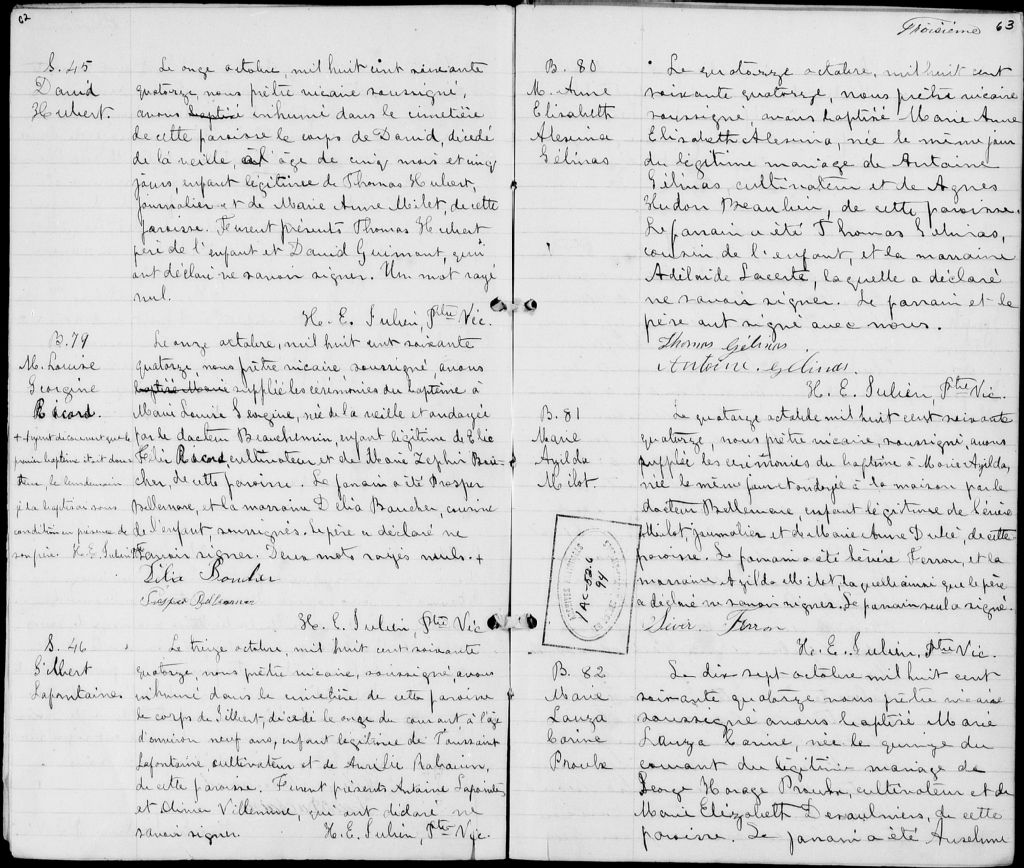 62
S. 45
David
Hubert.
Le onze octobre, mil huit cent soixante
quatorze, nous prêtre vicaire soussigné,
avons baptisé inhumé dans le cimetière
de cette paroisse le corps de David, décédé
de la veille, à l'âge de cinq mois et cinq
jours, enfant légitime de Thomas Hubert,
journalier et de Marie Anne Milot, de cette
paroisse. Furent présents Thomas Hubert
père de l'enfant et David Guimont, qui
ont déclaré ne savoir signer. Un mot rayé
nul.
H. E. Julien, Ptre Vic.
B. 79
M. Louise
Georgine
Ricard.
+ Ayant découvert que le
premier baptême était douteux, le lendemain
je la baptisai sous
condition en présence de
son père. H. E. Julien Ptre
Le onze octobre, mil huit cent soixante
quatorze, nous prêtre vicaire soussigné avons
baptisé Marie suppléé les cérémonies du baptême à
Marie Louise Georgine, née de la veille et ondoyée
par le docteur Beauchemin, enfant légitime de Elie
Félix Ricard, cultivateur et de Marie Zéphir Boucher, de cette paroisse. Le parrain a été Prosper
Bellemare, et la marraine Délia Boucher, cousine
de l'enfant, soussignés. Le père a déclaré ne
savoir signer. Deux mots rayés nuls. +
Délia Boucher
Prosper Bellemare
H. E. Julien, Ptre Vic
S. 46
Gilbert
Lafontaine.
Le treize octobre, mil huit cent soixante
quatorze, nous prêtre vicaire, soussigné avons
inhumé dans le cimetière de cette paroisse
le corps de Gilbert, décédé le onze du courant à l'âge
d'environ neuf ans, enfant légitime de Toussaint
Lafontaine cultivateur et de Aurélie Rabouin,
de cette paroisse. Furent présents Antoine Lafontaine
et Olivier Villemure, qui ont déclaré ne
savoir signer. H. E. Julien, Ptre Vic.
Troisième 63
B. 80
M. Anne
Elizabeth
Alexina
Gélinas
Le quatorze octobre, mil huit cent
soixante quatorze, nous prêtre vicaire
soussigné, avons baptisé Marie Anne
Elizabeth Alexina, née le même jour
du légitime mariage de Antoine
Gélinas cultivateur et de Agnes
Hudon Beaulieu, de cette paroisse.
Le parrain a été Thomas Gélinas,
cousin de l'enfant, et la marraine
Adélaide Lacerte, laquelle a déclaré
ne savoir signer. Le parrain et le
père ont signé avec nous.
Thomas Gélinas
Antoine Gélinas
H. E. Julien, Ptre Vic.
B. 81
Marie
Azilda
Milot.
Le quatorze octobre mil huit cent soixante
quatorze, nous prêtre vicaire, soussigné, avons
suppléé les cérémonies du baptême à Marie Azilda,
née le même jour et ondoyée à la maison par le
docteur Bellemare, enfant légitime de Sévère
Milot, journalier et de Marie Anne Dubé, de cette
paroisse. Le parrain a été Sévère Ferron, et la
marraine Azilda Milot, laquelle ainsi que le père
a déclaré ne savoir signer. Le parrain seul a signé.
Sivir Ferron
H. E. Julien, Ptre Vic.
1 AC-52.6
94
B. 82
Marie
Lauza
Corine
Proulx
Le dix sept octobre mil huit cent
soixante quatorze nous prêtre vicaire
soussigné avons baptisé Marie
Lauza Corine, née le quinze du
courant du légitime mariage de
George Horace Proulx, cultivateur et de
Marie Elizabeth Desaulniers, de cette
paroisse. Le parrain a été Anselme